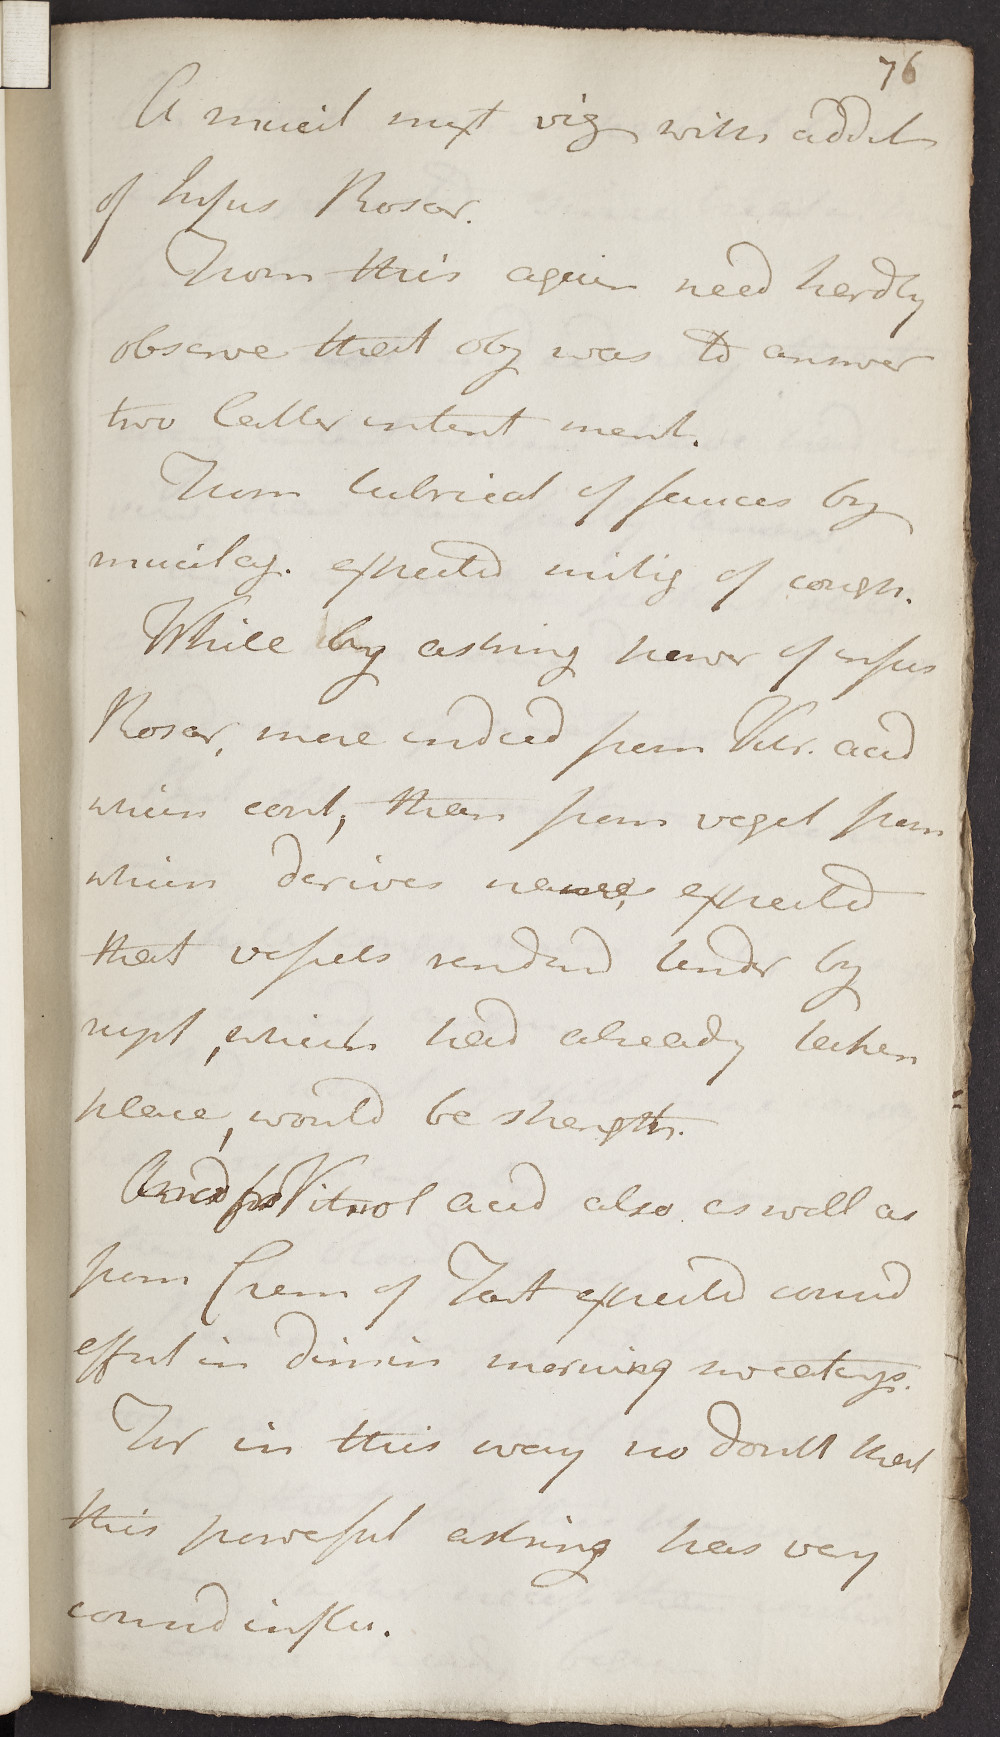 76
A mucil mixt viz with addit
of Infus Rosar.
From this again need hardly
observe that obj was to answer
two latter intent ment.
From lubricat of fauces by
mucilag. expected mitig of cough.
While by astring power of infus
Rosar, more indeed from Vitr. acid
which cont, than from veget from
which derives name, expected
that vessels rendred tender by
rupt, which had already taken
place, would be strength.
And from Vitriol acid also as well as
from Crem of Tart expected consid
effect in dimin morning sweatings.
For in this way no doubt that
this powerful astring has very
consid influ.